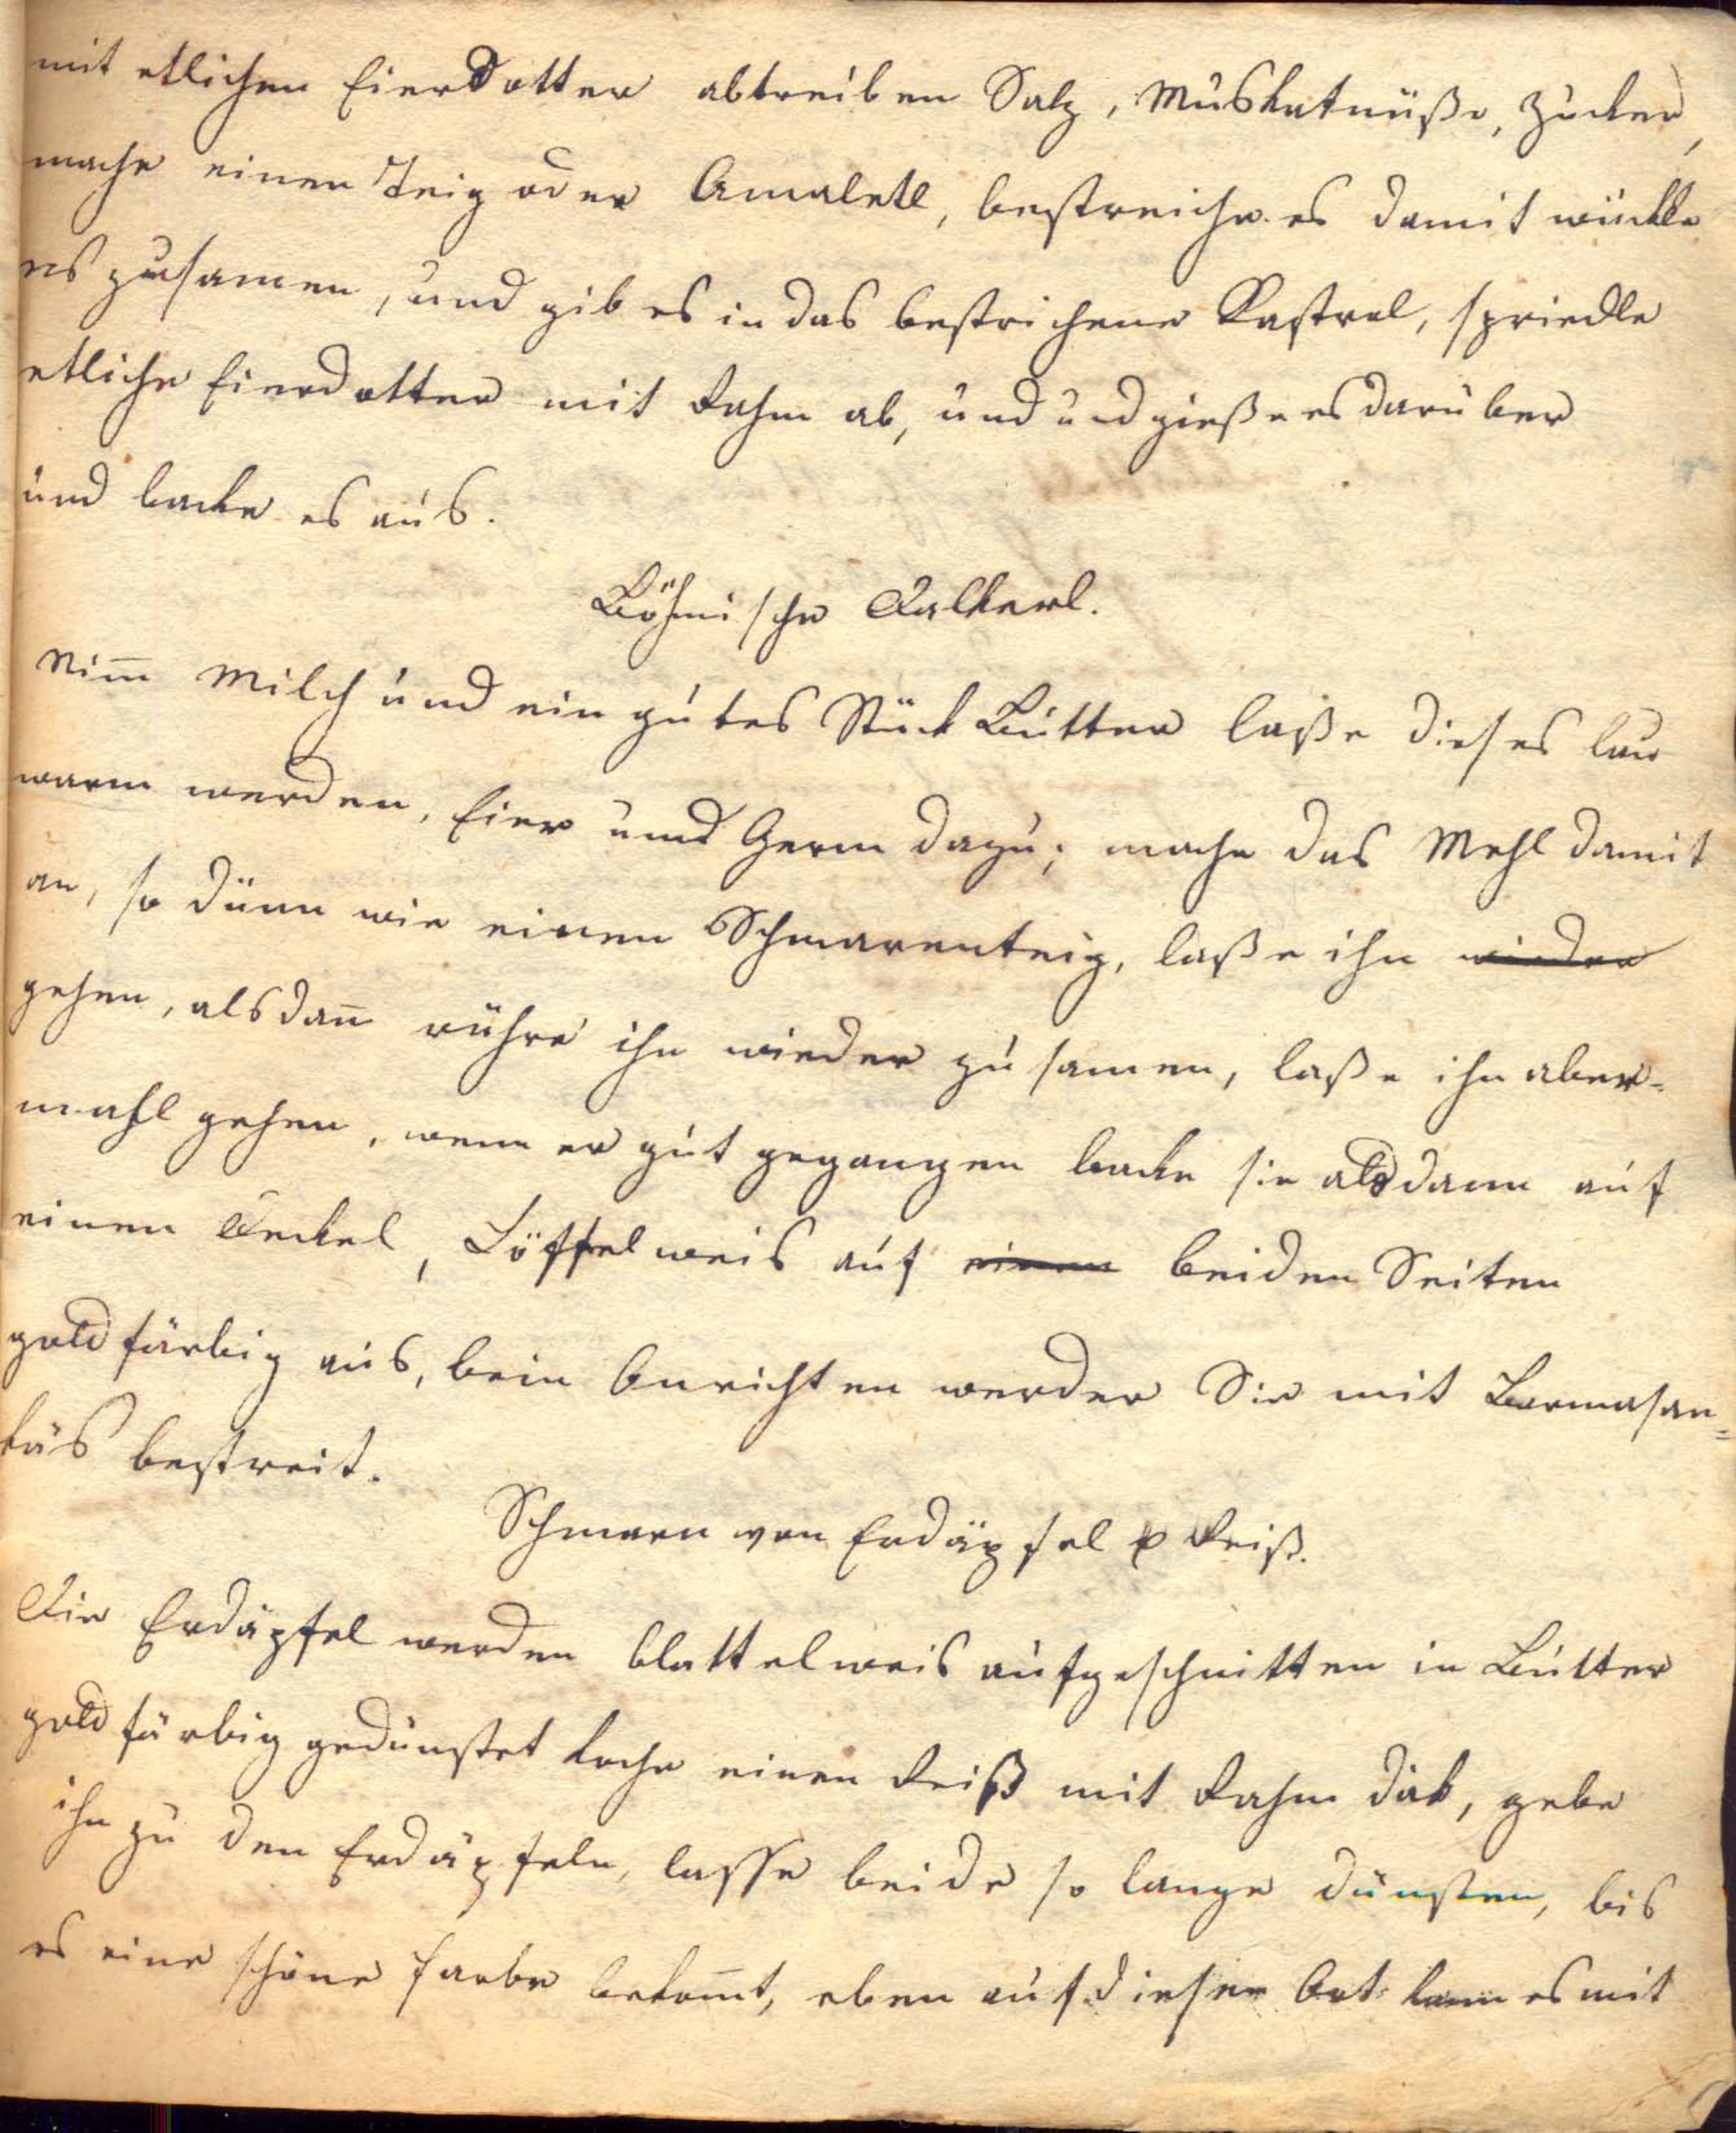 mit etlichen Eierdotter abtreiben Salz, Muskatnüße, Zucker,
mache einen Teig oder Amaletl, bestreiche es damit wückle
es zusamen, und gib es in das bestrichene Kastrol, spriedle
etliche Eierdotter mit Rahm ab, und und gieße es darüber
und backe es aus.
Böhmische Dalkerl.
Nim̅ Milch und ein gutes Stück Butter laße dieses lau
warm werden, Eier und Germ dazu; mache das Mehl damit
an, so dünn wie einen Schmarenteig, laße ihn wieder
gehen, alsdan̅ rühre ihn wieder zusamen, laße ihn aber-
mahl gehen, wenn er gut gegangen backe sie alsdann auf
einen Deckel, Löffelweis auf einen beiden Seiten
goldfärbig aus, beim Anrichten werden Sie mit Barmasan-
käs bestreit.
Schmarn von Erdäpfel u Reiß.
Die Erdäpfel werden blattelweis aufgeschnitten in Butter
goldfärbig gedünstet koche einen Reiß mit Rahm dick, gebe
ihn zu den Erdäpfeln, lasse beide so lange dünsten, bis
es eine schöne Farbe bekom̅t, eben auf dieser Art kann es mit